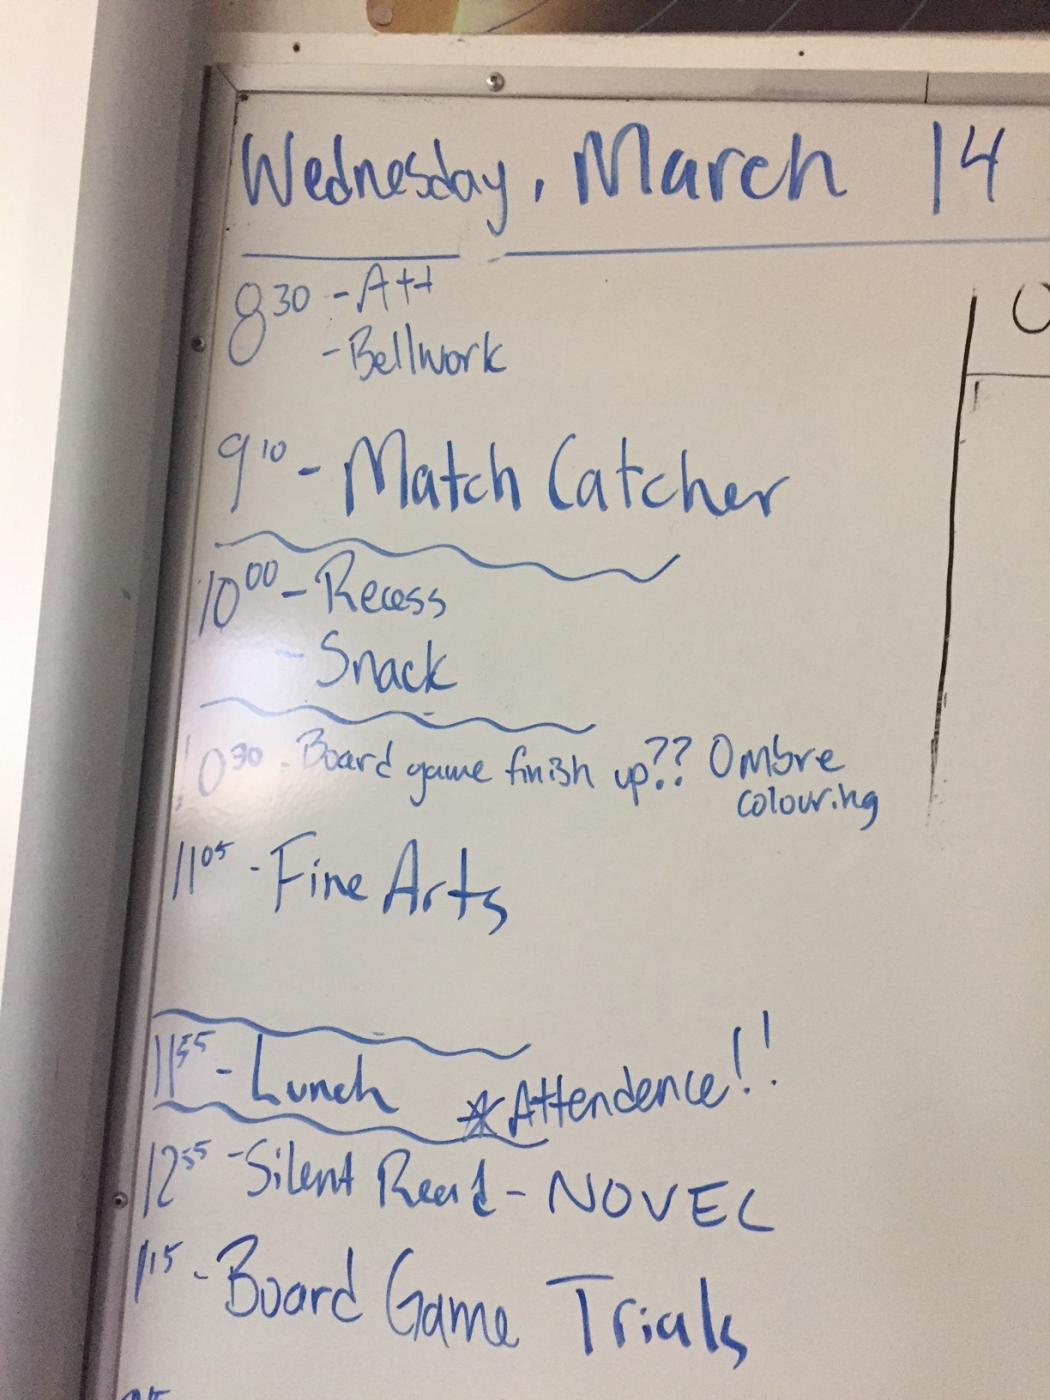 Wednesday, March 14
8 30 - Att
- Bellwork
9 10 - Match Catcher
10 00 - Recess
- Snack
10 30 - Board game finish up?? Ombre
colouring
11 05 - Fine Arts
11 55 - Lunch *Attendence!!
12 55 - Silent Read - NOVEL
1 15 - Board Game Trials